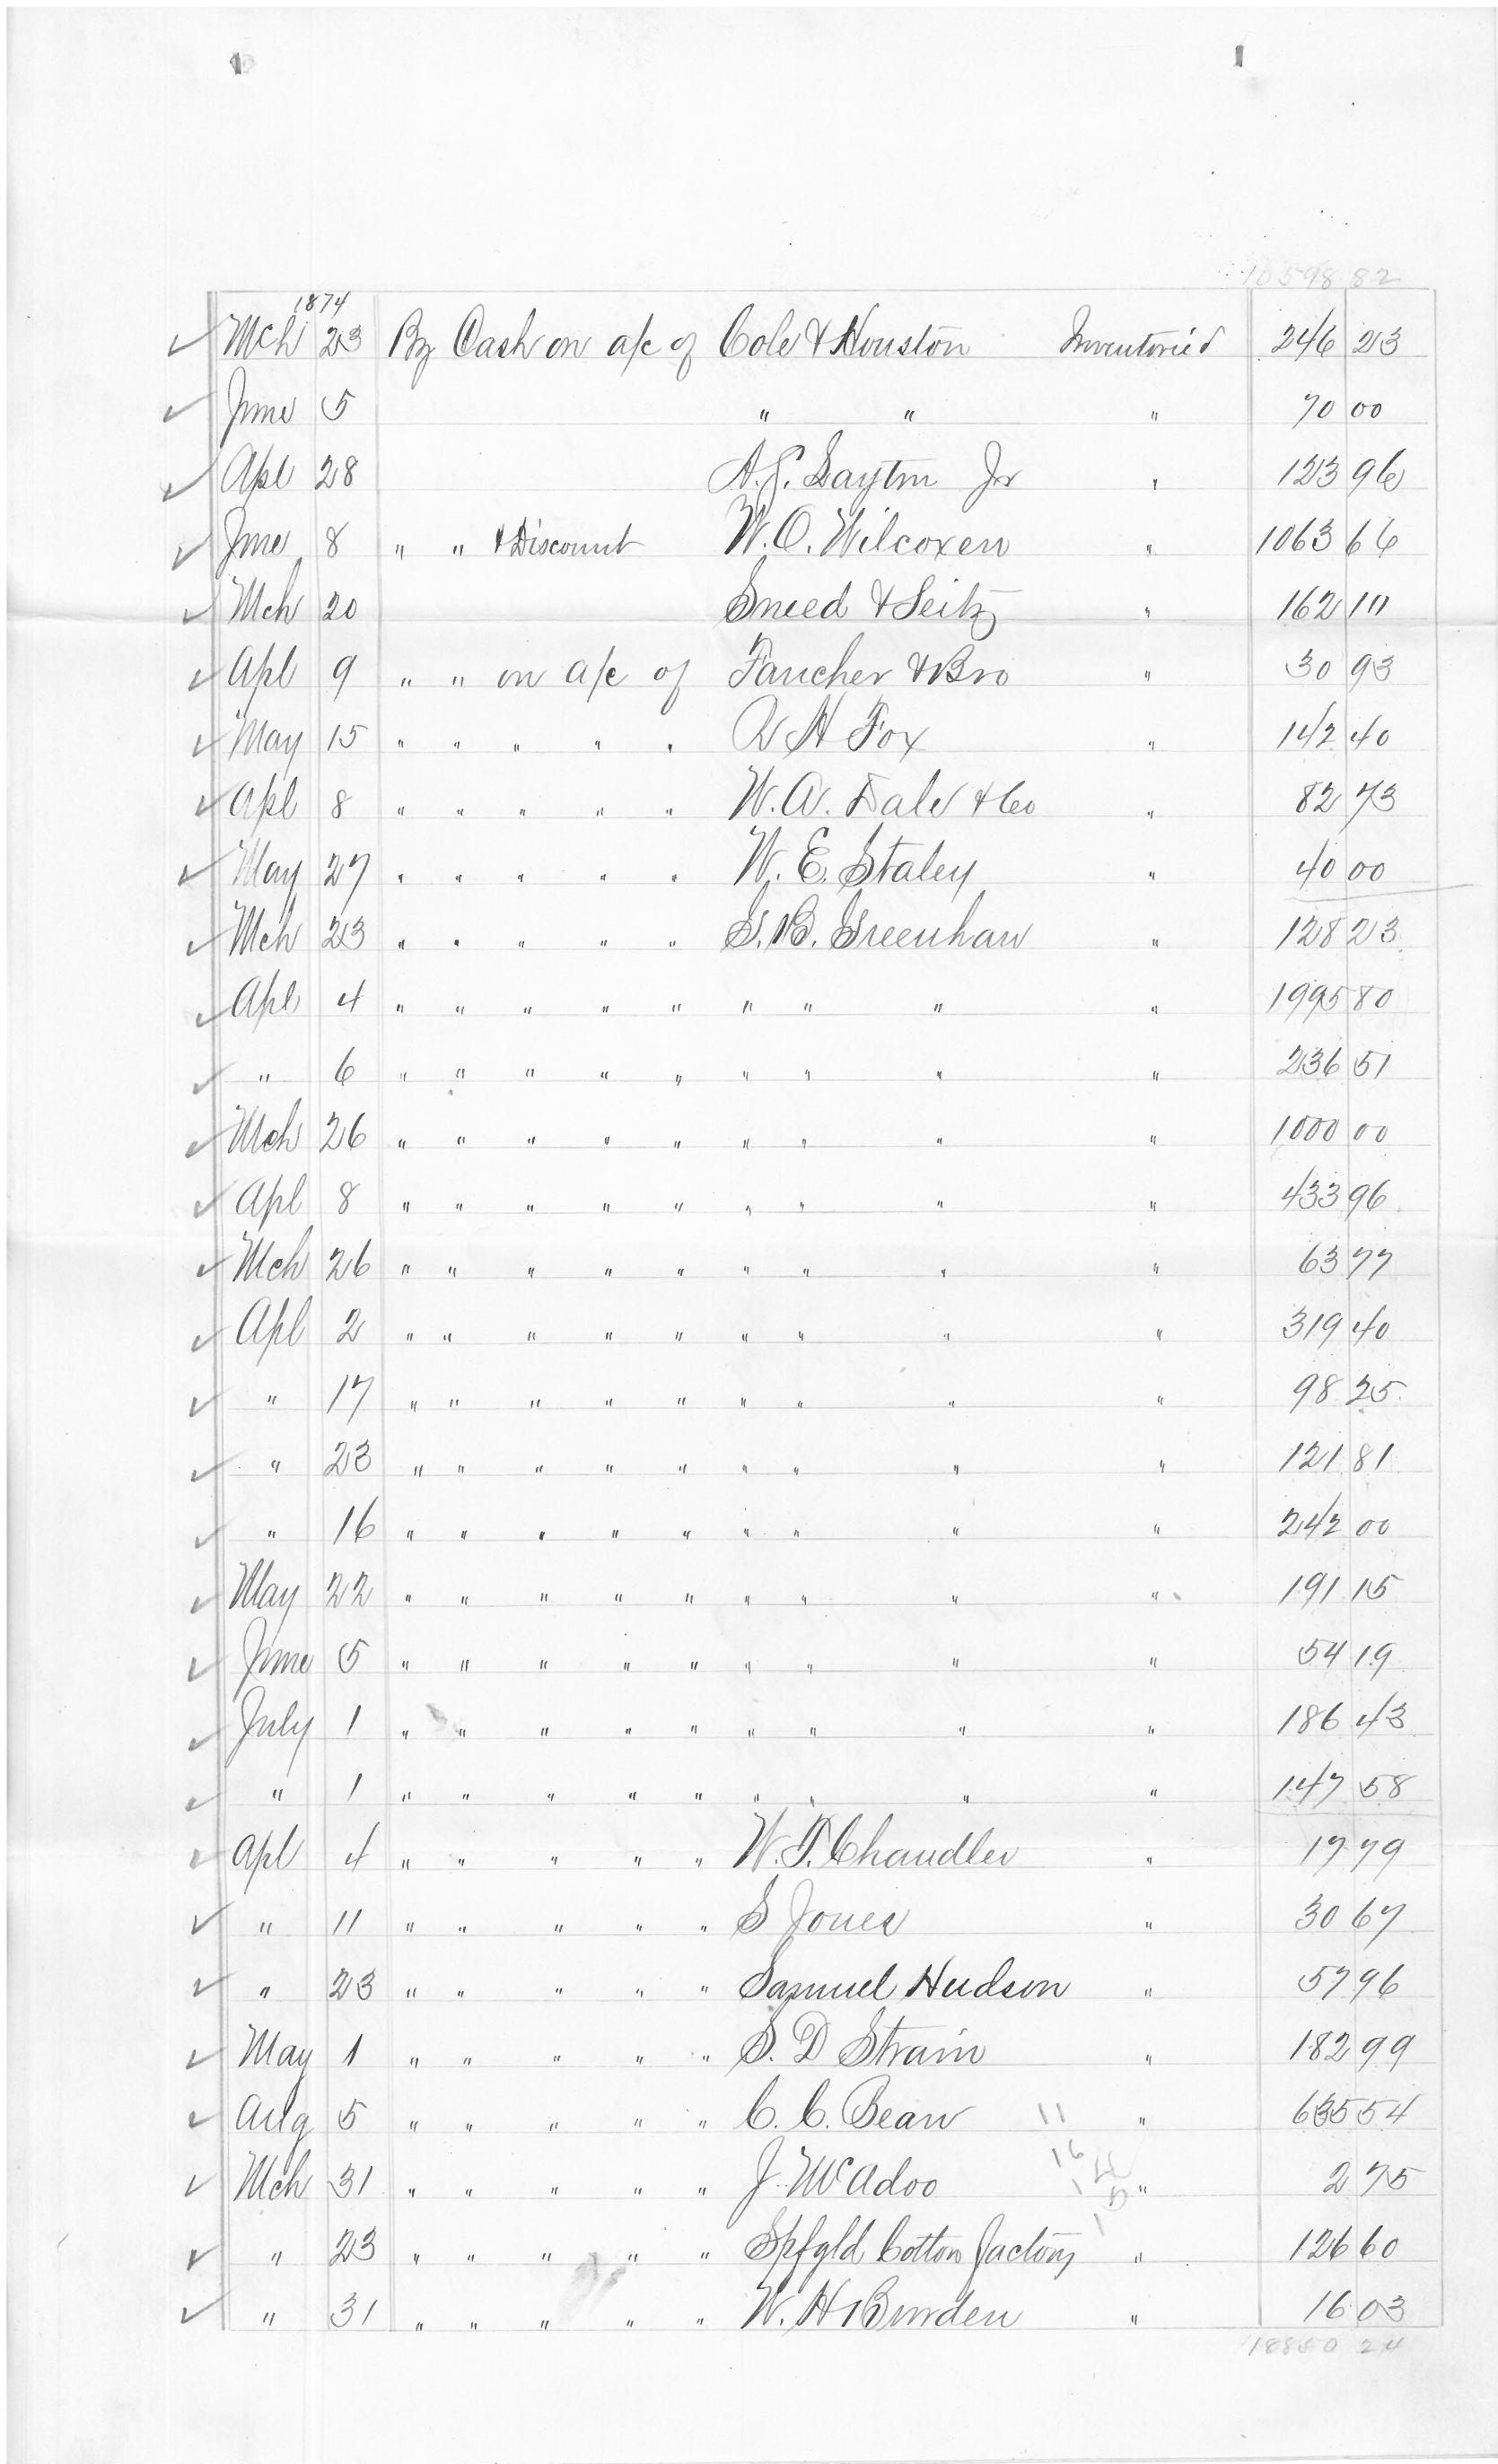 10598 82
1874
Mch 23 By Cash on a/c of Cole & Houston Inventoried 246 23
June 5 " " " 70 00
Apl 28 A. J. Layton Jr " 123 96
June 8 " " & Discount W. O. Wilcoxen " 1063 66
Mch 20 Sneed & Seitz " 162 10
Apl 9 " " on a/c of Fancher & Bro " 30 93
May 15 " " " " " H Fox " 142 40
Apl 8 " " " " " W. A. Dale & Co " 82 73
May 27 " " " " " W. E. Staley " 40 00
Mch 23 " " " " " G. B. Greenhaw " 128 23
Apl 4 " " " " " " " " " 1995 80
" 6 " " " " " " " " " 236 51
Mch 26 " " " " " " " " " 1000 00
Apl 8 " " " " " " " " " 433 96
Mch 26 " " " " " " " " " 63 77
Apl 2 " " " " " " " " " 319 40
" 17 " " " " " " " " " 98 25
" 23 " " " " " " " " " 121 81
" 16 " " " " " " " " " 242 00
May 22 " " " " " " " " " 191 15
June 5 " " " " " " " " " 54 19
July 1 " " " " " " " " " 186 43
" 1 " " " " " " " " " 147 58
Apl 4 " " " " " W. T. Chandler " 17 79
" 11 " " " " " S Jones " 30 67
" 23 " " " " " Samuel Hudson " 57 96
May 1 " " " " " S. D Strain " 182 99
Aug 5 " " " " " C. C. Bean 11 " 635 54
16
Mch 31 " " " " " J. McAdoo " 2 75
" 23 " " " " " Spfgld Cotton Factory " 126 60
" 31 " " " " " W. H Burden " 16 03
18850 24